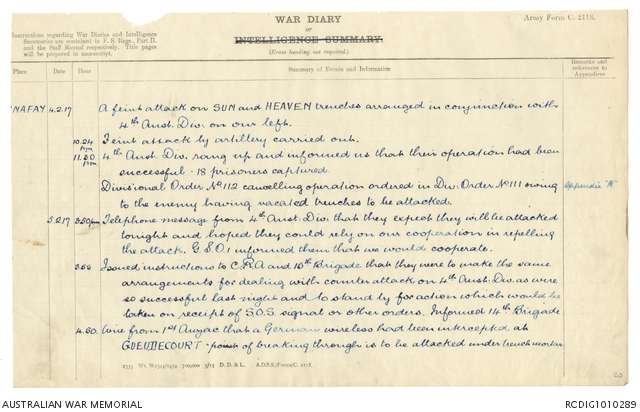 WAR DIARY
or
INTELLIGENCE SUMMARY.
(Erase heading not required.)
Army Form C. 2118.
Instructions regarding War Diaries and Intelligence
Summaries are contained in F. S. Regs., Part II.
and the Staff Manual respectively. Title pages
will be prepared in manuscript.
Place Date Hour Summary of Events and Information Remarks and references to Appendices
NAFAY 4.2.17 A feint attack on SUN and HEAVEN trenches arranged in conjunction with
4th Aust. Div. on our left.
10.24 pm Feint attack by artillery carried out.
11.50 pm 4th Aust. Div. rang up and informed us that their operation had been
successful - 18 prisoners captured.
Divisional Order No 112 cancelling operation ordered in Div. Order No 111 owing
to the enemy having vacated trenches to be attacked. Appendix "A"
5.2.17 3.50 pm Telephone message from 4th Aust. Div. that they expect they will be attacked
tonight and hoped they could rely on our cooperation in repelling
the attack. G.S.O.1 informed them that we would cooperate.
Issued instructions to C.R.A and 15th Brigade that they were to make the same
arrangements for dealing with counter attack on 4th Aust. Div. as were
so successful last night and to stand by for action which would be
taken on receipt of S.O.S. signal or other orders. Informed 14th Brigade
Wire from 1st Anzac that a German wireless had been intercepted at
GUEUDECOURT - point of breaking through is to be attacked under trench mortar
D. D. & L.
AUSTRALIAN WAR MEMORIAL
RCDIG1010289